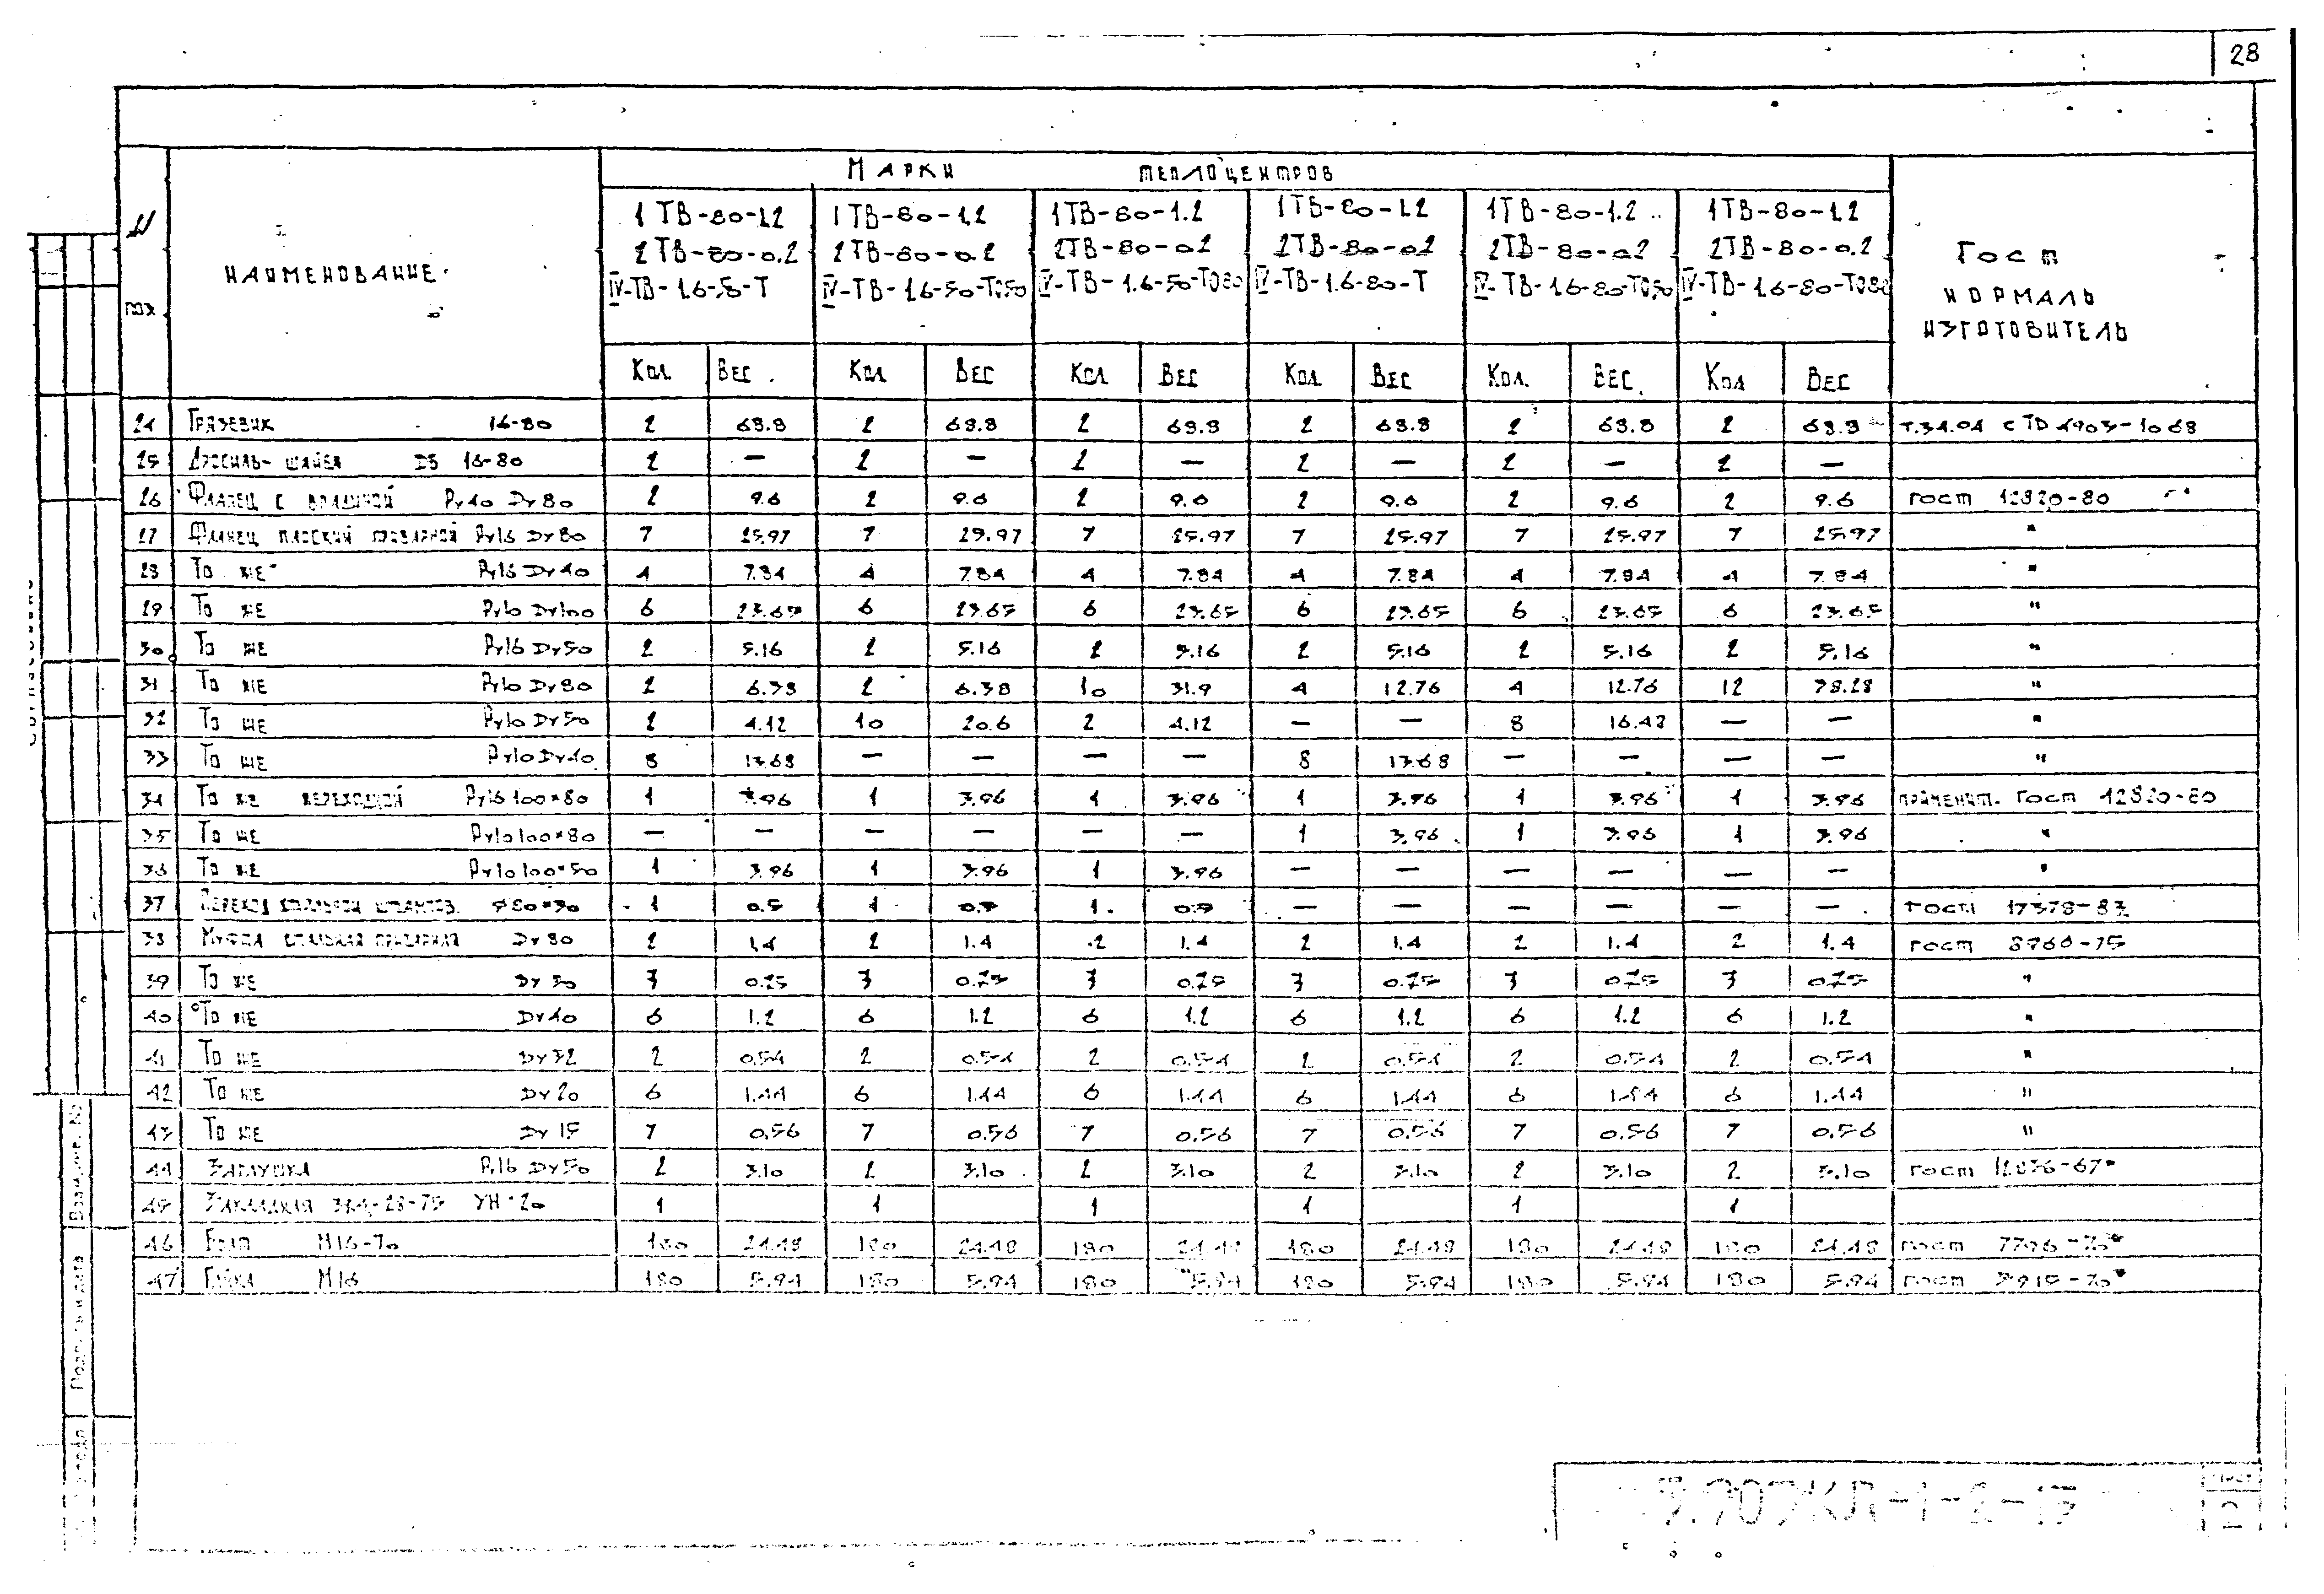 28
Марки теплоцентров
N поз
Наименование
1ТВ-80-1.2 1ТВ-80-1.2 1ТВ-80-1.2 1ТВ-80-1.2 1ТВ-80-1.2 1ТВ-80-1.2
2ТВ-80-0.2 2ТВ-80-0.2 2ТВ-80-0.2 2ТВ-80-0.2 2ТВ-80-0.2 2ТВ-80-0.2
IV-ТВ-1.6-50-Т IV-ТВ-1.6-50-Т050 IV-ТВ-1.6-50-Т080 IV-ТВ-1.6-80-Т IV-ТВ-1.6-80-Т050 IV-ТВ-1.6-80-Т080
Гост
нормаль
изготовитель
Кол Вес Кол Вес Кол Вес Кол Вес Кол. Вес Кол Вес
24 Грязевик 16-80 2 68.8 2 68.8 2 68.8 2 68.8 2 68.8 2 68.8 Т.34.04
25 Дроссель-шайба 16-80 2 — 2 — 2 — 2 — 2 — 2 —
26 Фланец с впадиной Ру40 Dу80 2 9.6 2 9.6 2 9.6 2 9.6 2 9.6 2 9.6 Гост 12820-80
27 Фланец плоский приварной Ру16 Dу80 7 25.97 7 25.97 7 25.97 7 25.97 7 25.97 7 25.97 "
28 То же Ру16 Dу40 4 7.84 4 7.84 4 7.84 4 7.84 4 7.84 4 7.84 "
29 То же Ру10 Dу100 6 23.65 6 23.65 6 23.65 6 23.65 6 23.65 6 23.65 "
30 То же Ру16 Dу50 2 5.16 2 5.16 2 5.16 2 5.16 2 5.16 2 5.16 "
31 То же Ру10 Dу80 2 6.38 2 6.38 10 31.9 4 12.76 4 12.76 12 38.28 "
32 То же Ру10 Dу50 2 4.12 10 20.6 2 4.12 — — 8 16.48 — — "
33 То же Ру10 Dу40 8 13.68 — — — — 8 13.68 — — — — "
34 То же переходной Ру16 100×80 1 3.96 1 3.96 1 3.96 1 3.96 1 3.96 1 3.96 применит. Гост 12820-80
35 То же Ру10 100×80 — — — — — — 1 3.96 1 3.96 1 3.96 "
36 То же Ру10 100×50 1 3.96 1 3.96 1 3.96 — — — — — — "
37 Переход стальной штампов. 80×50 1 0.5 1 0.5 1 0.5 — — — — — — Гост 17378-83
38 Муфта стальная приварная Dу80 2 1.4 2 1.4 2 1.4 2 1.4 2 1.4 2 1.4 Гост 8966-75
39 То же Dу50 3 0.75 3 0.75 3 0.75 3 0.75 3 0.75 3 0.75 "
40 То же Dу40 6 1.2 6 1.2 6 1.2 6 1.2 6 1.2 6 1.2 "
41 То же Dу32 2 0.54 2 0.54 2 0.54 2 0.54 2 0.54 2 0.54 "
42 То же Dу20 6 1.44 6 1.44 6 1.44 6 1.44 6 1.44 6 1.44 "
43 То же Dу15 7 0.56 7 0.56 7 0.56 7 0.56 7 0.56 7 0.56 "
44 Заглушка Ру16 Dу50 2 3.10 2 3.10 2 3.10 2 3.10 2 3.10 2 3.10 Гост 12836-67*
45 Закладная ЗК4-28-75 УН-20 1 1 1 1 1 1
46 Болт М16-70 180 24.48 180 24.48 180 24.48 180 24.48 180 24.48 180 24.48 Гост 7796-70*
47 Гайка М16 180 5.94 180 5.94 180 5.94 180 5.94 180 5.94 180 5.94 Гост 5915-70*
Взам. инв. №
Подпись и дата
Лист
2